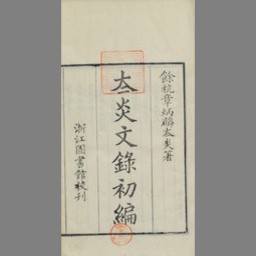 餘杭章炳麟太炎箸
太炎文錄初編
浙江圖書館校刊